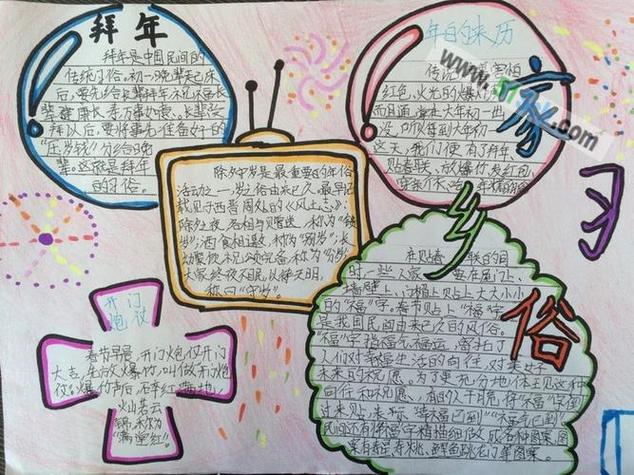 拜年
拜年是中国民间的
传统习俗,初一晚辈起床
后,要先给长辈拜年,祝福长
辈健康长寿,万事如意。长辈受
拜以后,要将事先准备好的
"压岁钱"分给晚
辈。这就是拜年
的习俗。
年的来历
红色,火光
而且通常在大年初一出
没,所以每到大年初一
这天,我们便有了拜年、
贴春联、放爆竹、发红包、
家
乡
习
俗
除夕守岁是最重要的年俗
活动之一,守岁之俗由来已久。最早记
载见于西晋周处的《风土志》:
除夕之夜,各相与赠送,称为"馈
岁";酒食相邀,称为"别岁";长
幼聚饮,祝颂完备,称为"分岁";
大家终夜不眠,以待天明,
称曰"守岁"。
开门
炮仗
春节早晨,开门炮仗,开门
大吉,先放爆竹,叫做开门炮
仗。爆竹声后,碎红满地,
灿若云
锦,称为
"满堂红"。
在贴春联的同
时,一些人家要在屋门上、
墙壁上、门楣上贴上大大小小
的"福"字。春节贴上"福"字,
是我国民间由来已久的风俗。
"福"字指福气、福运,寄托了
人们对幸福生活的向往,对美好
未来的祝愿。为了更充分地体现这种
向往和祝愿,有的人干脆将"福"字倒
过来贴,表示"幸福已到""福气已到"
民间还有将"福"字精描细做成各种图案,图
案有寿星、寿桃、鲤鱼跳龙门等图案。